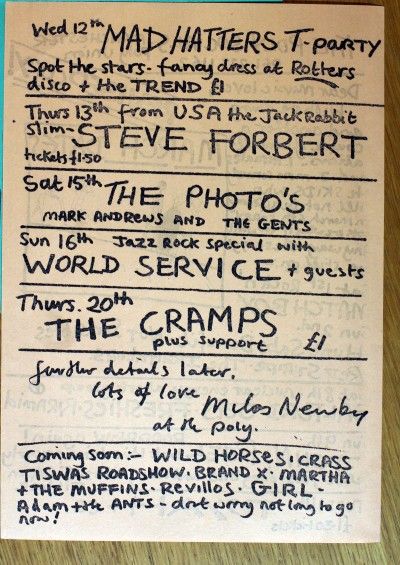 Wed 12th MAD HATTERS T PARTY
Spot the stars - fancy dress at Rotters
disco + the TREND £1
Thurs 13th from USA the Jack Rabbit
Slim - STEVE FORBERT
tickets £1.50
Sat 15th THE PHOTO'S
MARK ANDREWS AND THE GENTS
Sun 16th Jazz Rock Special with
WORLD SERVICE + guests
Thurs. 20th
THE CRAMPS
plus support £1
further details later.
lots of love Miles Newby
at the poly.
Coming soon :- WILD HORSES · CRASS
TISWAS ROADSHOW · BRAND X · MARTHA
+ THE MUFFINS · Revillos · GIRL ·
Adam + the ANTS · dont worry not long to go
now!